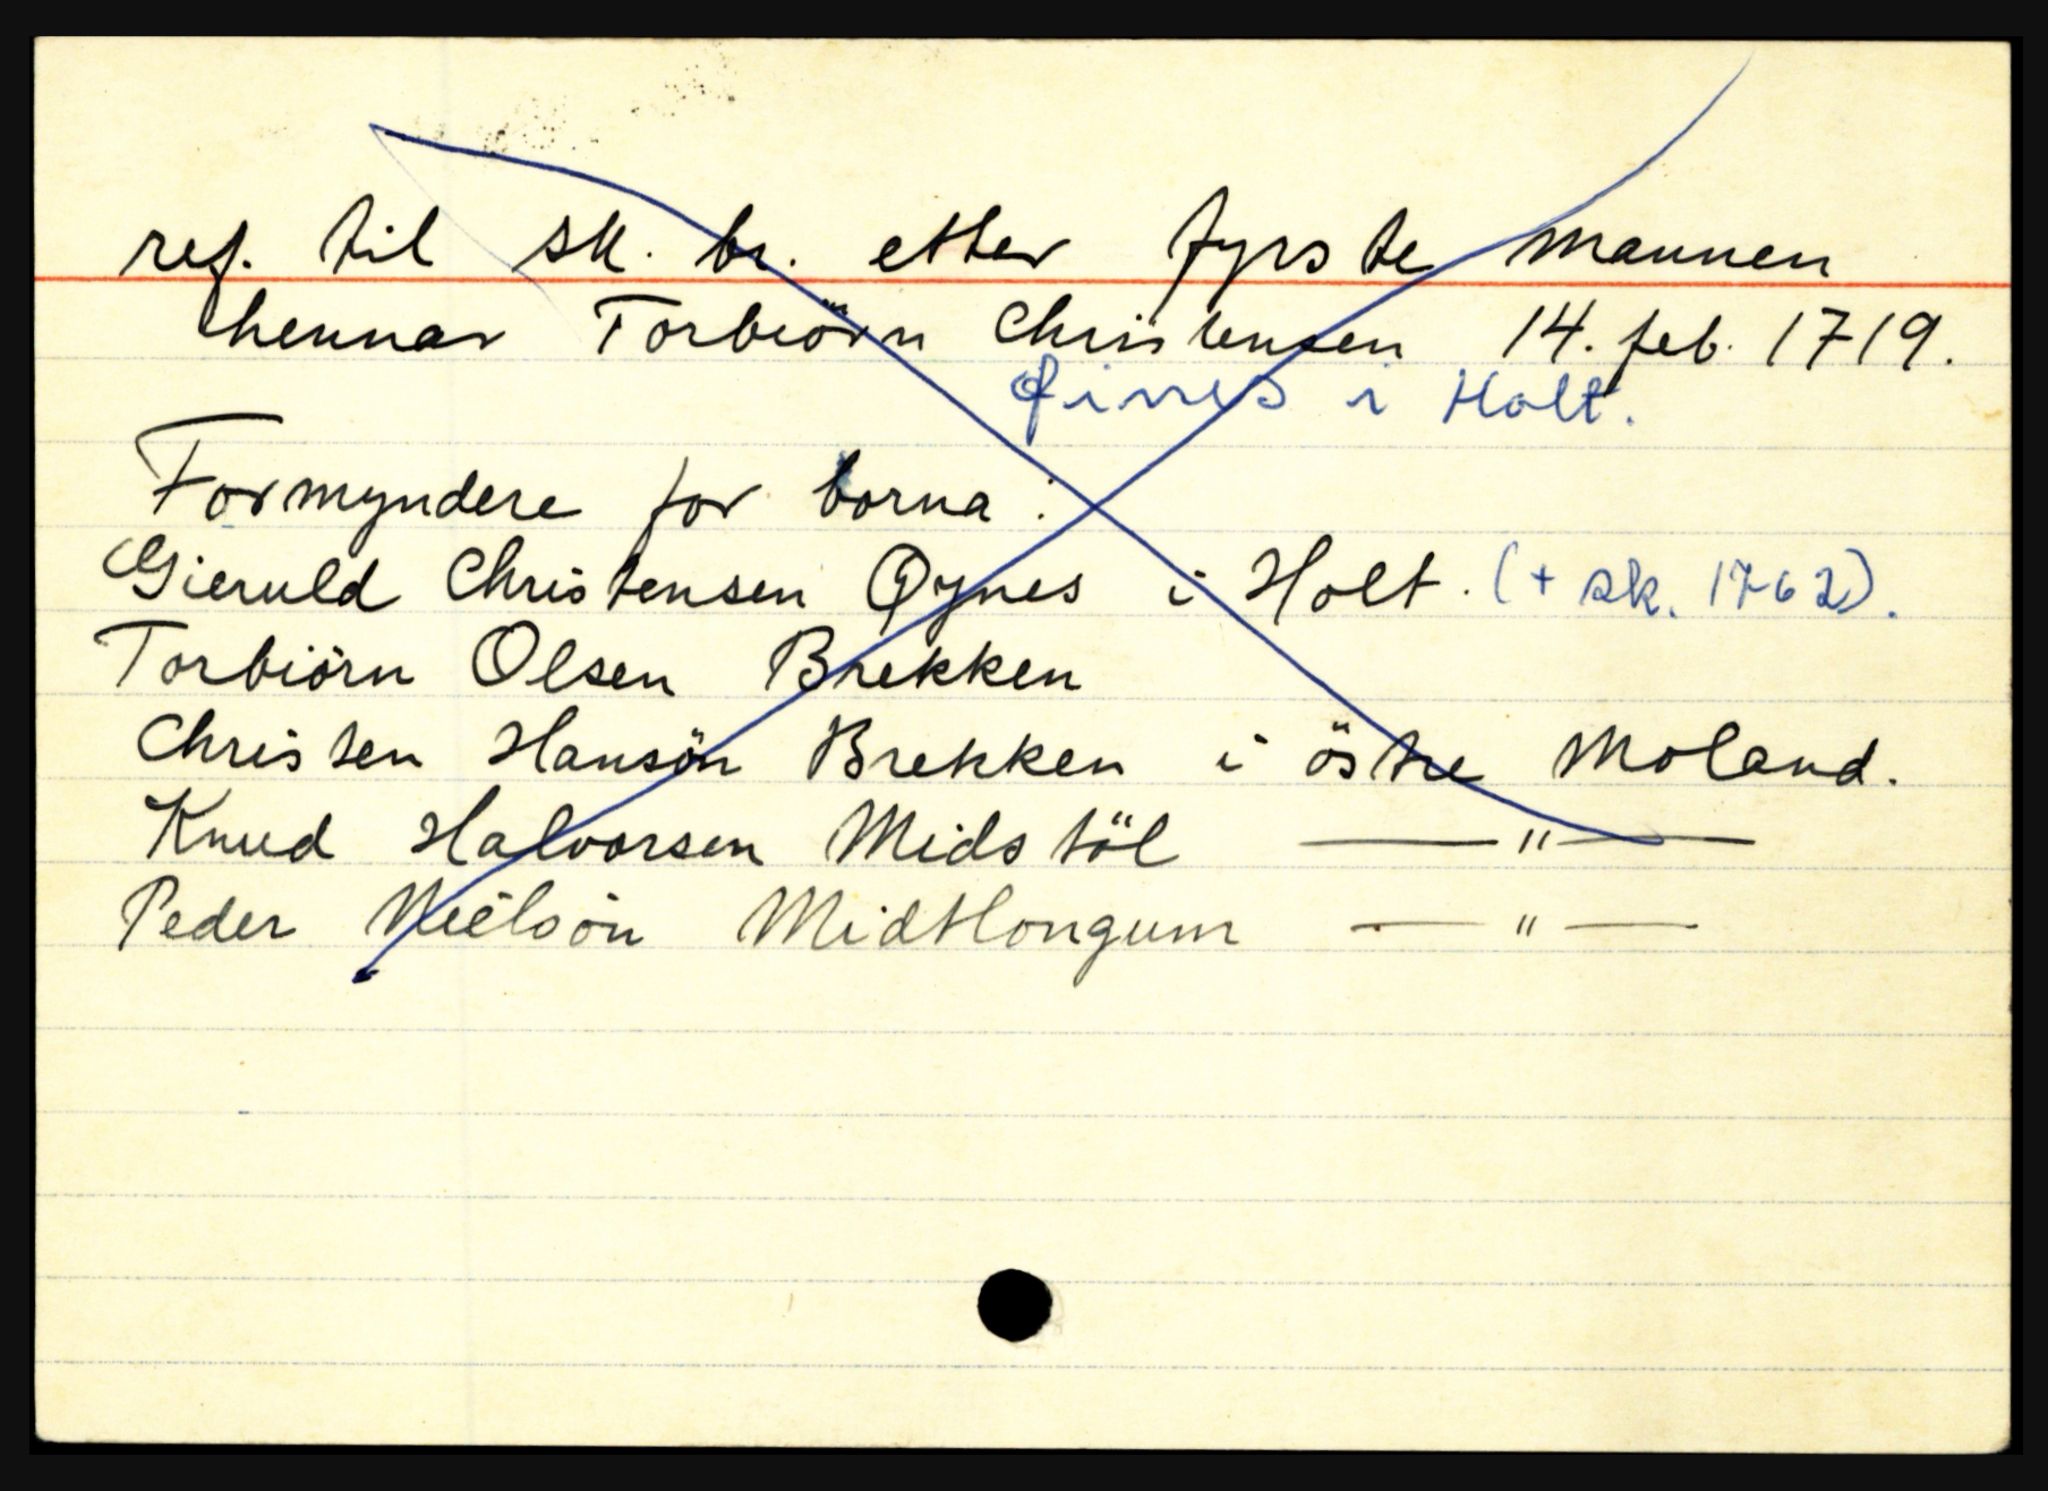 ref. til sk. br. etter fyrste mannen
hennar Torbiörn Christensen 14. feb. 1719.
finnes i Holt.
Formyndere for borna :
Gieruld Christensen Qynes i Holt. (+ sk. 1762).
Torbiörn Olsen Brekken
Christen Hansön Brekken i östre Moland.
Knud Halvorsen Midstöl — " —
Peder Nielsön Midtlongum — " —